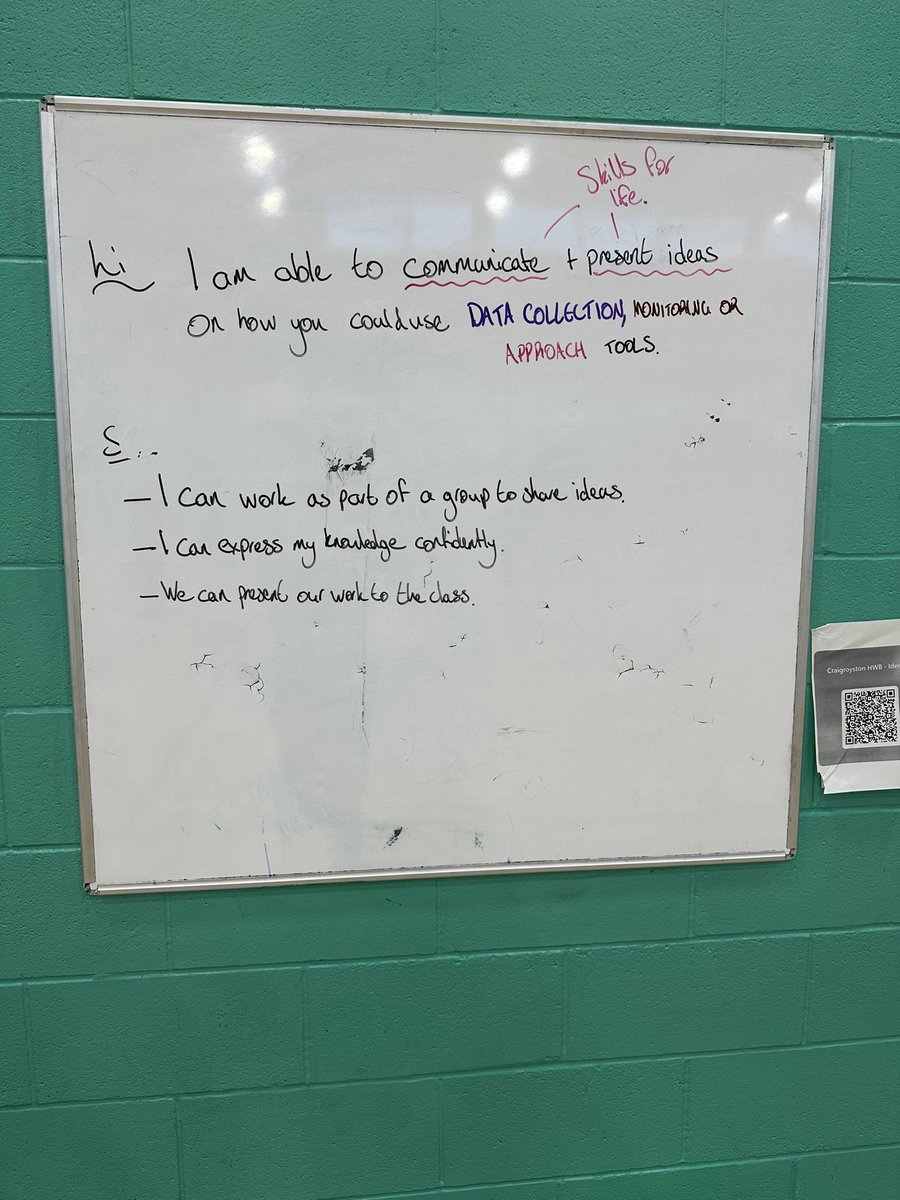 Skills for
life.
hi I am able to communicate + present ideas
on how you could use DATA COLLECTION, MONITORING OR
APPROACH TOOLS.
S...
– I can work as part of a group to share ideas.
– I can express my knowledge confidently.
– We can present our work to the class.
Craigroyston HWB - Iden